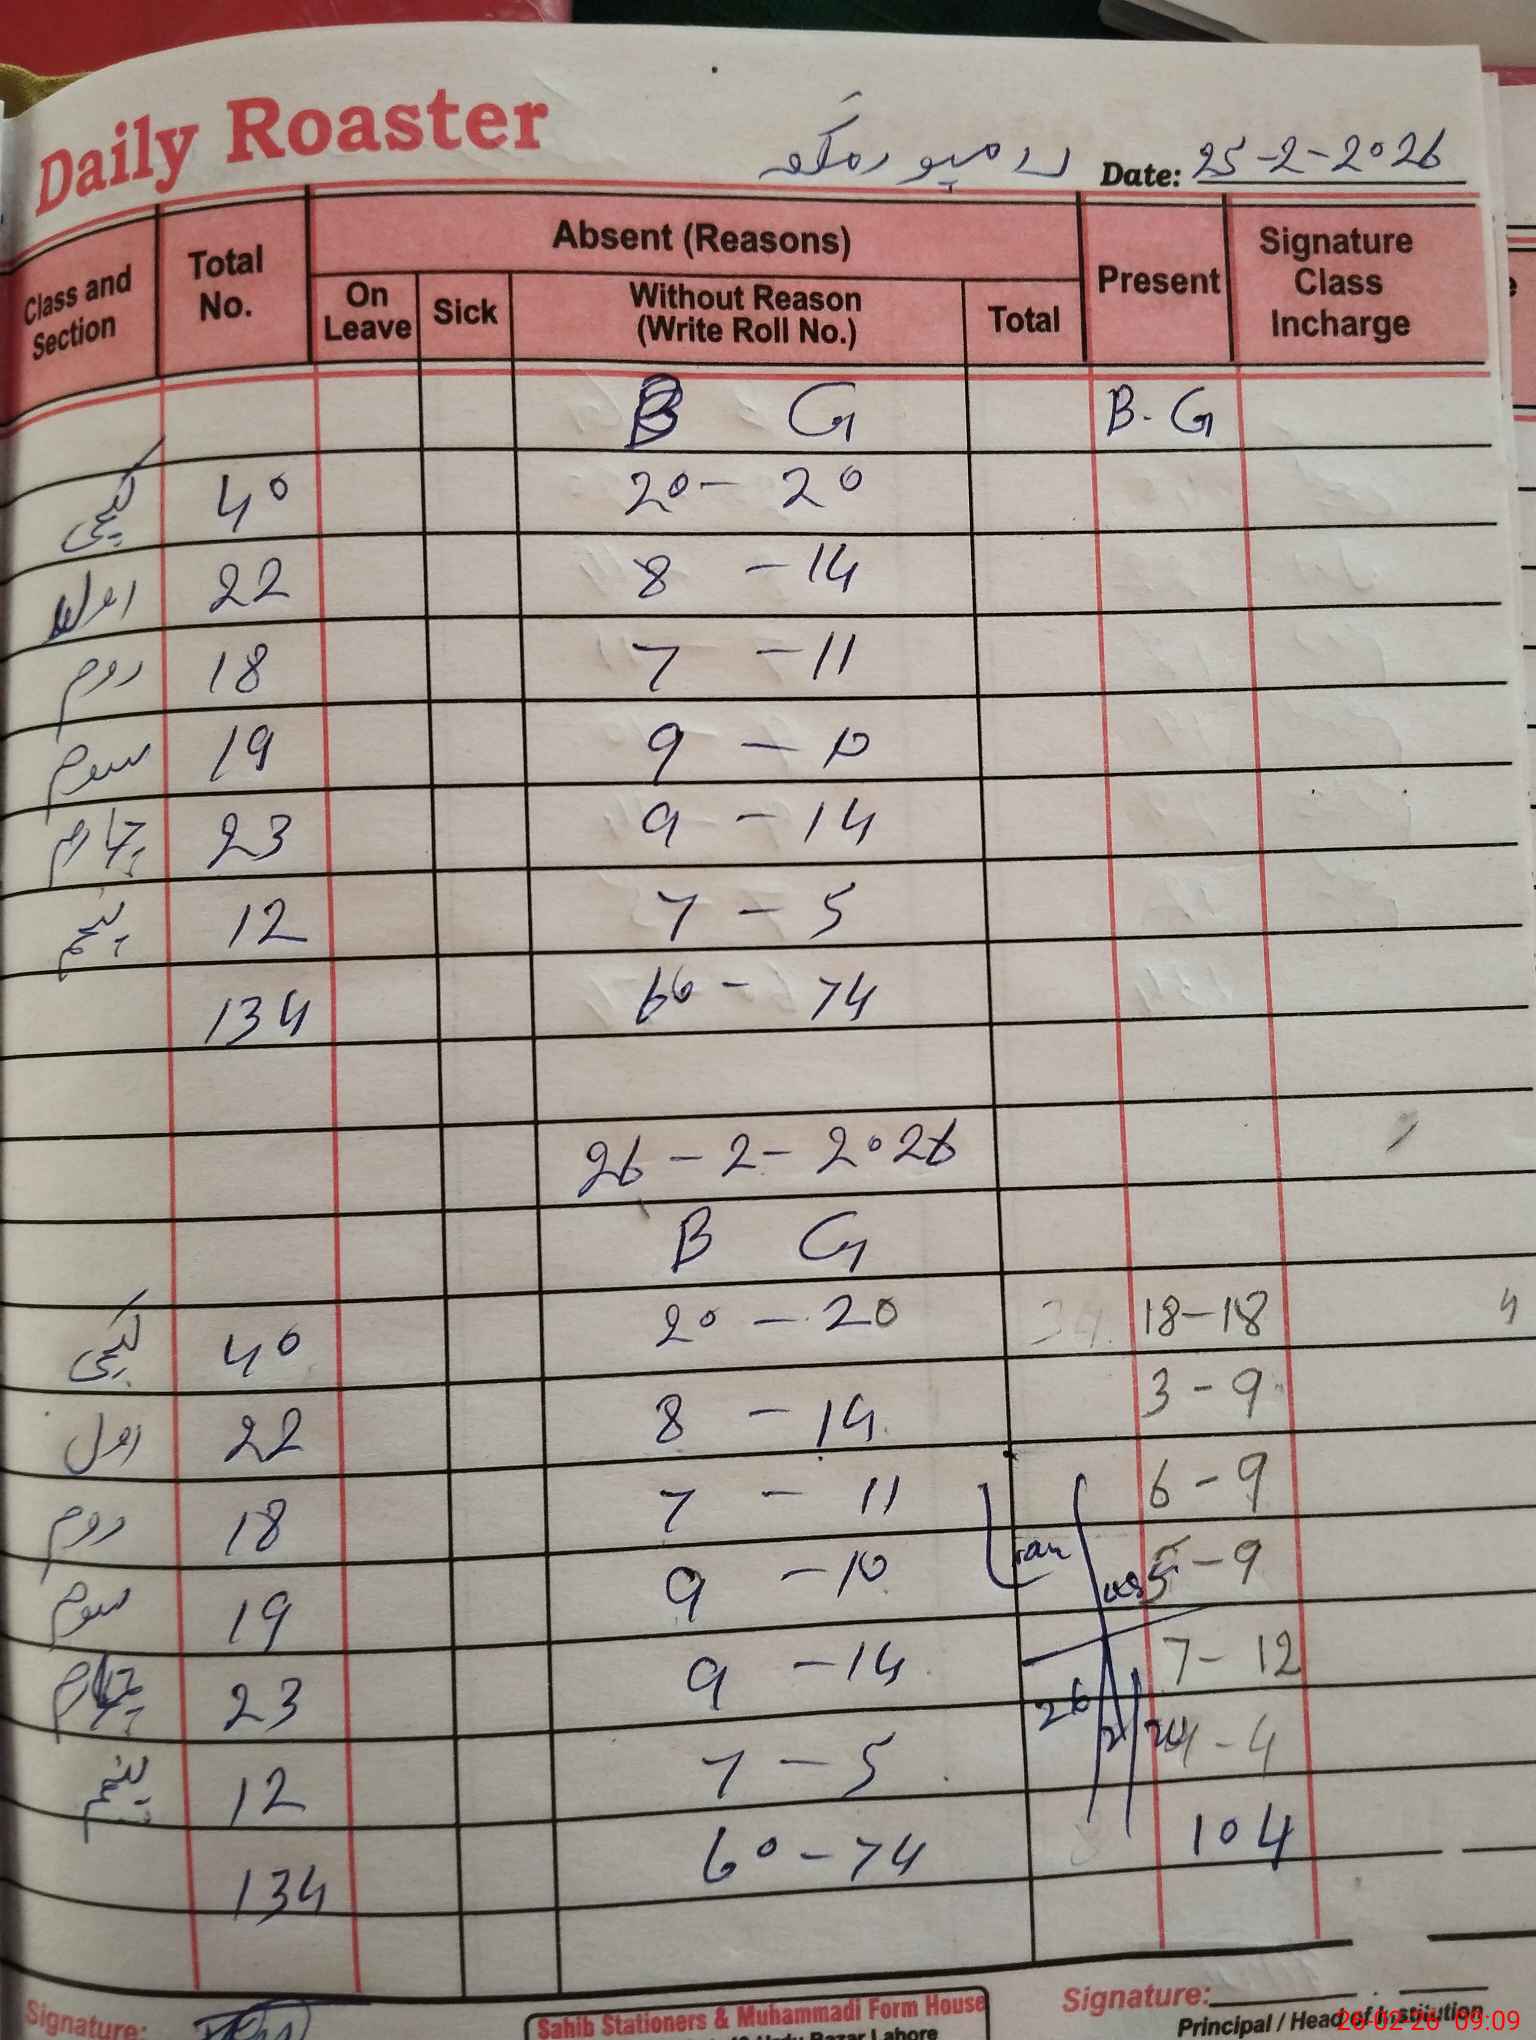 Daily Roaster
Date: 25-2-2026
Class and Section Total No. Absent (Reasons) Present Signature Class Incharge
On Leave Sick Without Reason (Write Roll No.) Total
B G B. G
کچی 40 20 - 20
اول 22 8 - 14
دوم 18 7 - 11
سوم 19 9 - 10
چہارم 23 9 - 14
پنجم 12 7 - 5
134 60 - 74
26-2-2026
B G
کچی 40 20 - 20 34 18-18 4
اول 22 8 - 14 3-9
دوم 18 7 - 11 6-9
سوم 19 9 - 10 5-9
چہارم 23 9 - 14 7-12
26
پنجم 12 7 - 5 4-4
134 60 - 74 104
Signature:
Sahib Stationers & Muhammadi Form House
Urdu Bazar Lahore
Signature:
Principal / Head of Institution
26-02-26 09:09